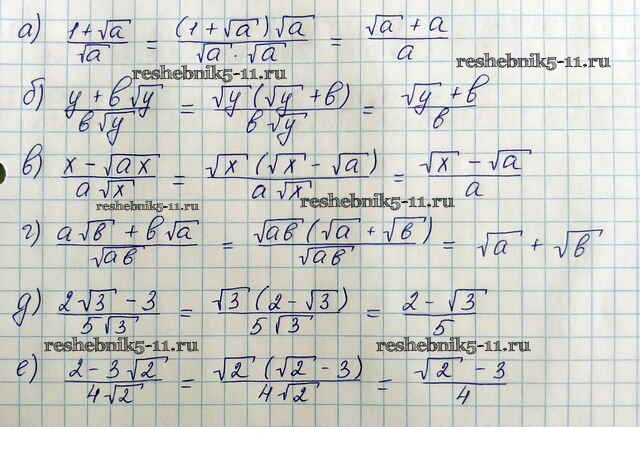 а) (1 + √a)/√a = ((1 + √a)√a)/(√a · √a) = (√a + a)/a
reshebnik5-11.ru reshebnik5-11.ru
б) (y + b√y)/(b√y) = (√y(√y + b))/(b√y) = (√y + b)/b
в) (x - √ax)/(a√x) = (√x(√x - √a))/(a√x) = (√x - √a)/a
reshebnik5-11.ru reshebnik5-11.ru
г) (a√b + b√a)/√ab = (√ab(√a + √b))/√ab = √a + √b
д) (2√3 - 3)/(5√3) = (√3(2 - √3))/(5√3) = (2 - √3)/5
reshebnik5-11.ru reshebnik5-11.ru
е) (2 - 3√2)/(4√2) = (√2(√2 - 3))/(4√2) = (√2 - 3)/4